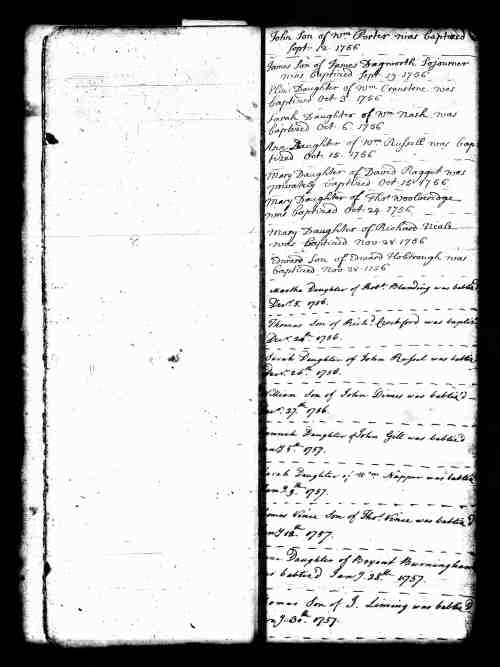 John Son of Wm Porter was baptized
Sept. 12 1756
James Son of James Dagworth Sojourner
was baptized Sept. 19 1756
Daughter of Wm Cranstone was
baptized Oct. 3. 1756
Sarah Daughter of Wm Nash was
baptized Oct. 6. 1756
Ann Daughter of Wm Russell was bap
tized Oct. 15. 1756
Mary Daughter of David Raggat was
privately baptized Oct 15 1756
Mary Daughter of Thos. Wooldridge
was baptized Oct. 24. 1756
Mary Daughter of Richard Neale
was baptized Nov. 28 1756
Edward Son of Edward Hobrough was
baptized Nov. 28 1756
Martha Daughter of Robt. Blunding was babtiz
Decr. 5. 1756.
Thomas Son of Richd. Crockford was baptiz
Decr. 24th. 1756.
Sarah Daughter of John Russel was babtiz
Decr. 26th. 1756.
William Son of John Dimes was babtiz'd
27th. 1756.
annah Daughter of John Gill was babtiz'd
5th. 1757.
arah Daughter of Wm Napper was babtiz
9th. 1757.
omas Vince Son of Thos. Vince was babtiz'd
1757.
Daughter of Bryant Burmingham
s babtiz'd Jany. 28th 1757.
omas Son of J. Liming was babtiz'd
30th. 1757.